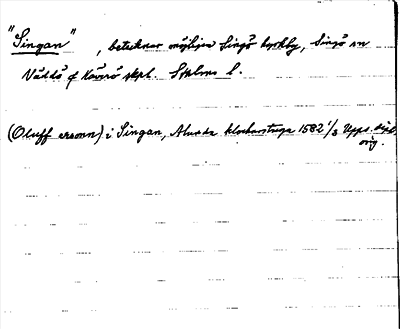 "Singan", betecknar möjligen Singö kyrkby, Singö sn
Väddö o Häverö skpl. Sthlms l.
(Oluff ersonn) i Singan, Alunda klockarstuga 1582 1/3 Upps.
orig.